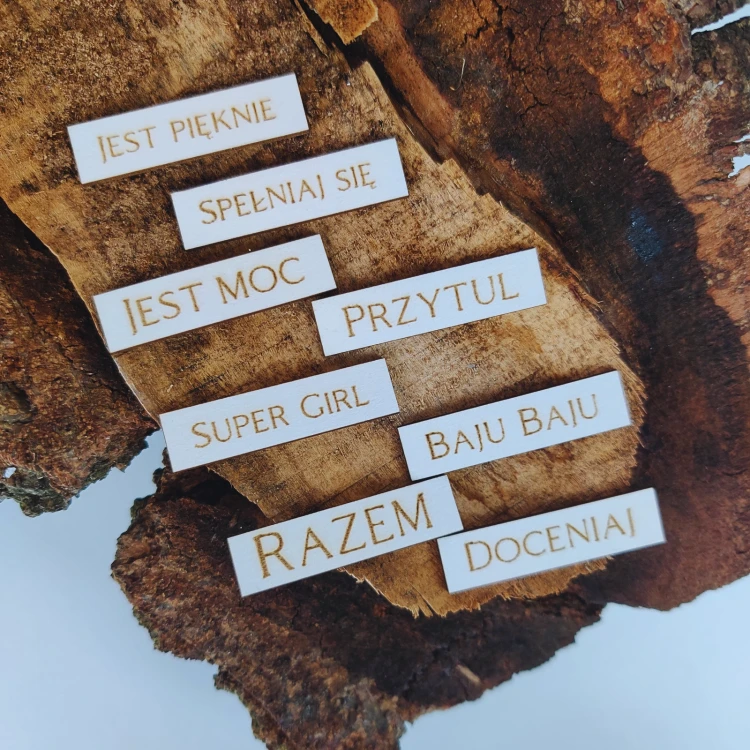 JEST PIĘKNIE
SPEŁNIAJ SIĘ
JEST MOC
PRZYTUL
SUPER GIRL
BAJU BAJU
RAZEM
DOCENIAJ